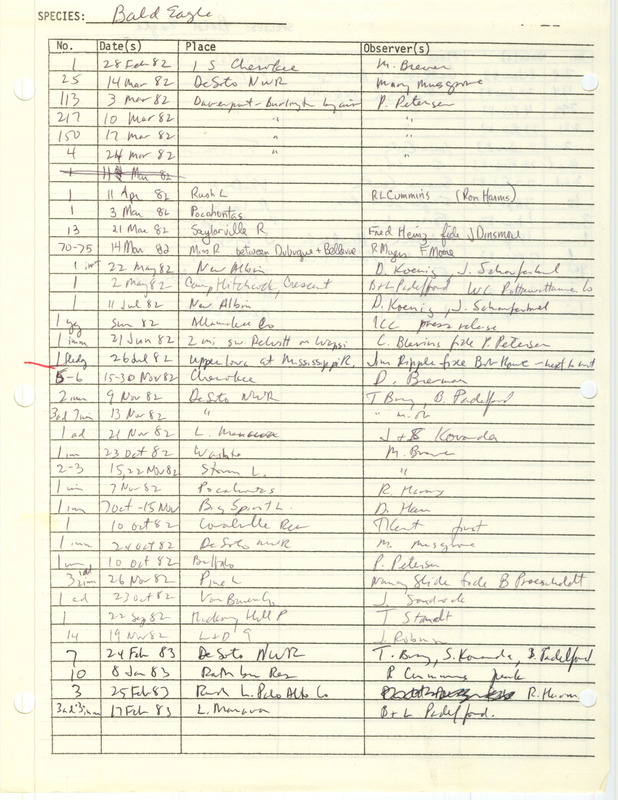 SPECIES: Bald Eagle
No. Date(s) Place Observer(s)
1 28 Feb 82 1 S Cherokee M. Brewer
25 14 Mar 82 DeSoto NWR Mary Musgrove
113 3 Mar 82 Davenport-Burlington by air P. Petersen
217 10 Mar 82 " "
150 17 Mar 82 " "
4 24 Mar 82 " "
1 11 Mar 82
1 11 Apr 82 Rush L RLCummins (Ron Harms)
1 3 Mar 82 Pocahontas
13 21 Mar 82 Saylorville R. Fred Heinz fide J Dinsmore
70-75 14 Mar 82 Miss R between Dubuque + Bellevue R Myers F Moore
1 im 22 May 82 New Albin D. Koenig, J. Schaufenbuel
1 2 May 82 Camp Hitchcock, Crescent B+L Padelford WC Pottawattamie Co
1 11 Jul 82 New Albin D. Koenig, J. Schaufenbuel
1 yg Sum 82 Allamakee Co ICC press release
1 imm 21 Jun 82 2 mi sw. DeWitt on Wapsi C. Blevins fide P. Petersen
1 fledg 26 Jul 82 Upper Iowa at Mississippi R. Jim Ripple fide Bob - next to nest
5-6 15-30 Nov 82 Cherokee D. Bierman
2 imm 9 Nov 82 DeSoto NWR T Bray, B. Padelford
3ad 7im 13 Nov 82 " "
1 ad 21 Nov 82 L. Manawa J + B Kovanda
1 im 23 Oct 82 M. Brewer
2-3 15,22 Nov 82 Storm L. "
1 im 7 Nov 82 Pocahontas R. Harms
1 im 7 Oct-15 Nov Big Spirit L. D. Harr
1 10 Oct 82 Coralville Res T Kent
1 imm 24 Oct 82 DeSoto NWR M. Musgrove
1 im 10 Oct 82 Buffalo P. Petersen
3 1ad 2im 26 Nov 82 Pine L Nancy Slife fide B Proescholdt
1 ad 23 Oct 82 Van Buren Co J. Sandrock
1 22 Sep 82 Hickory Hill P T Staudt
14 19 Nov 82 L+D 9 J. Robinson
7 24 Feb 83 DeSoto NWR T. Bray, S. Kovanda, B. Padelford
10 8 Jan 83 Rathbun Res R Cummins
3 25 Feb 83 Rush L. Palo Alto Co R. Harms
3ad 3im 17 Feb 83 L. Manawa B + L Padelford.